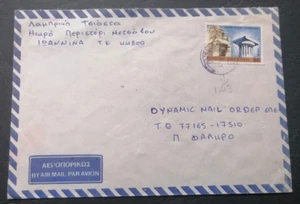 Λαμπρινή Τσιόστα
Μικρό Περιστέρι Μετσόβου
ΙΩΑΝΝΙΝΑ Τ.Κ 44200
DYNAMIC MAIL ORDER
Τ.Θ 77165-17510
Π. ΦΑΛΗΡΟ
ΑΕΡΟΠΟΡΙΚΩΣ
BY AIR MAIL, PAR AVION